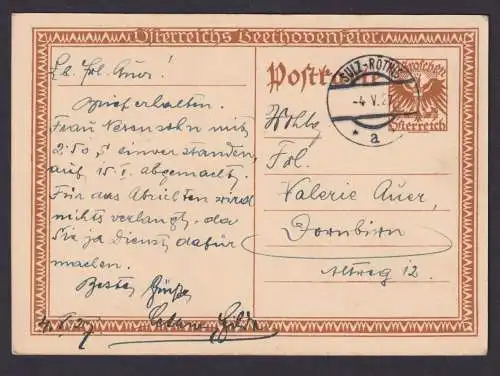 Österreichs Beethovenfeier
Postkarte
Groschen
Österreich
SULZ-RÖTHIS
-4.V.27
* a
Lb. Frl. Auer!
Brief erhalten.
Frau mit
2.50 S einverstanden,
auf 15.V. abgemacht.
Für das Abrichten wird
nichts verlangt, da
Sie ja Dienst dafür
machen.
Beste Grüße
Hilda
4.V.27.
Wohlg.
Frl.
Valerie Auer,
Dornbirn
Altweg 12.